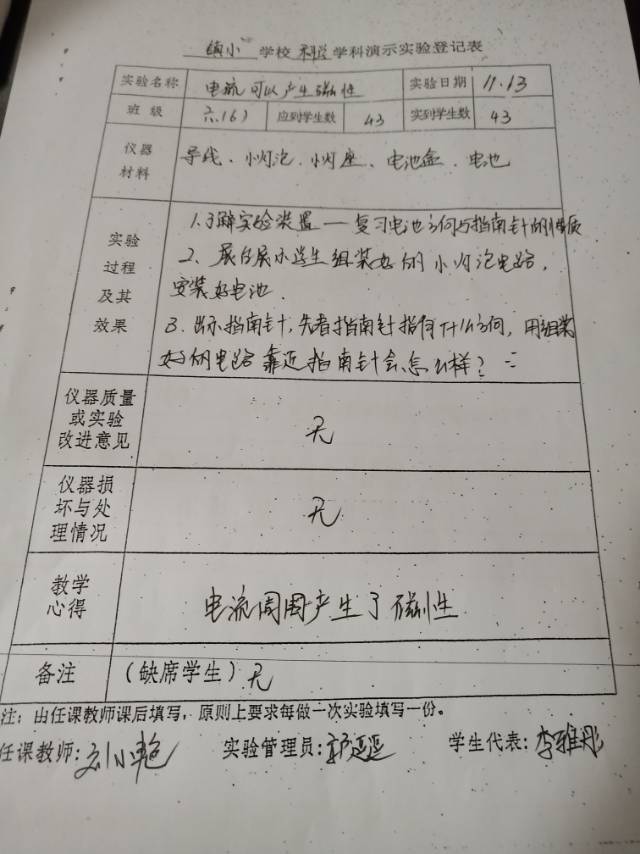 镇小 学校 科学 学科演示实验登记表
实验名称 电流可以产生磁性 实验日期 11.13
班 级 六.(6) 应到学生数 43 实到学生数 43
仪器
材料
导线、小灯泡、小灯座、电池盒、电池
实验
过程
及其
效果
1.了解实验装置—复习电池方向与指南针的性质
2、展台展示学生组装好的小灯泡电路,
安装好电池.
3.出示指南针,先看指南针指向什么方向,用组装
好的电路靠近指南针会怎么样?
仪器质量
或实验
改进意见
无
仪器损
坏与处
理情况
无
教学
心得
电流周围产生了磁性
备注 (缺席学生)无
注:由任课教师课后填写,原则上要求每做一次实验填写一份。
任课教师:刘小艳 实验管理员: 学生代表:李雅彤